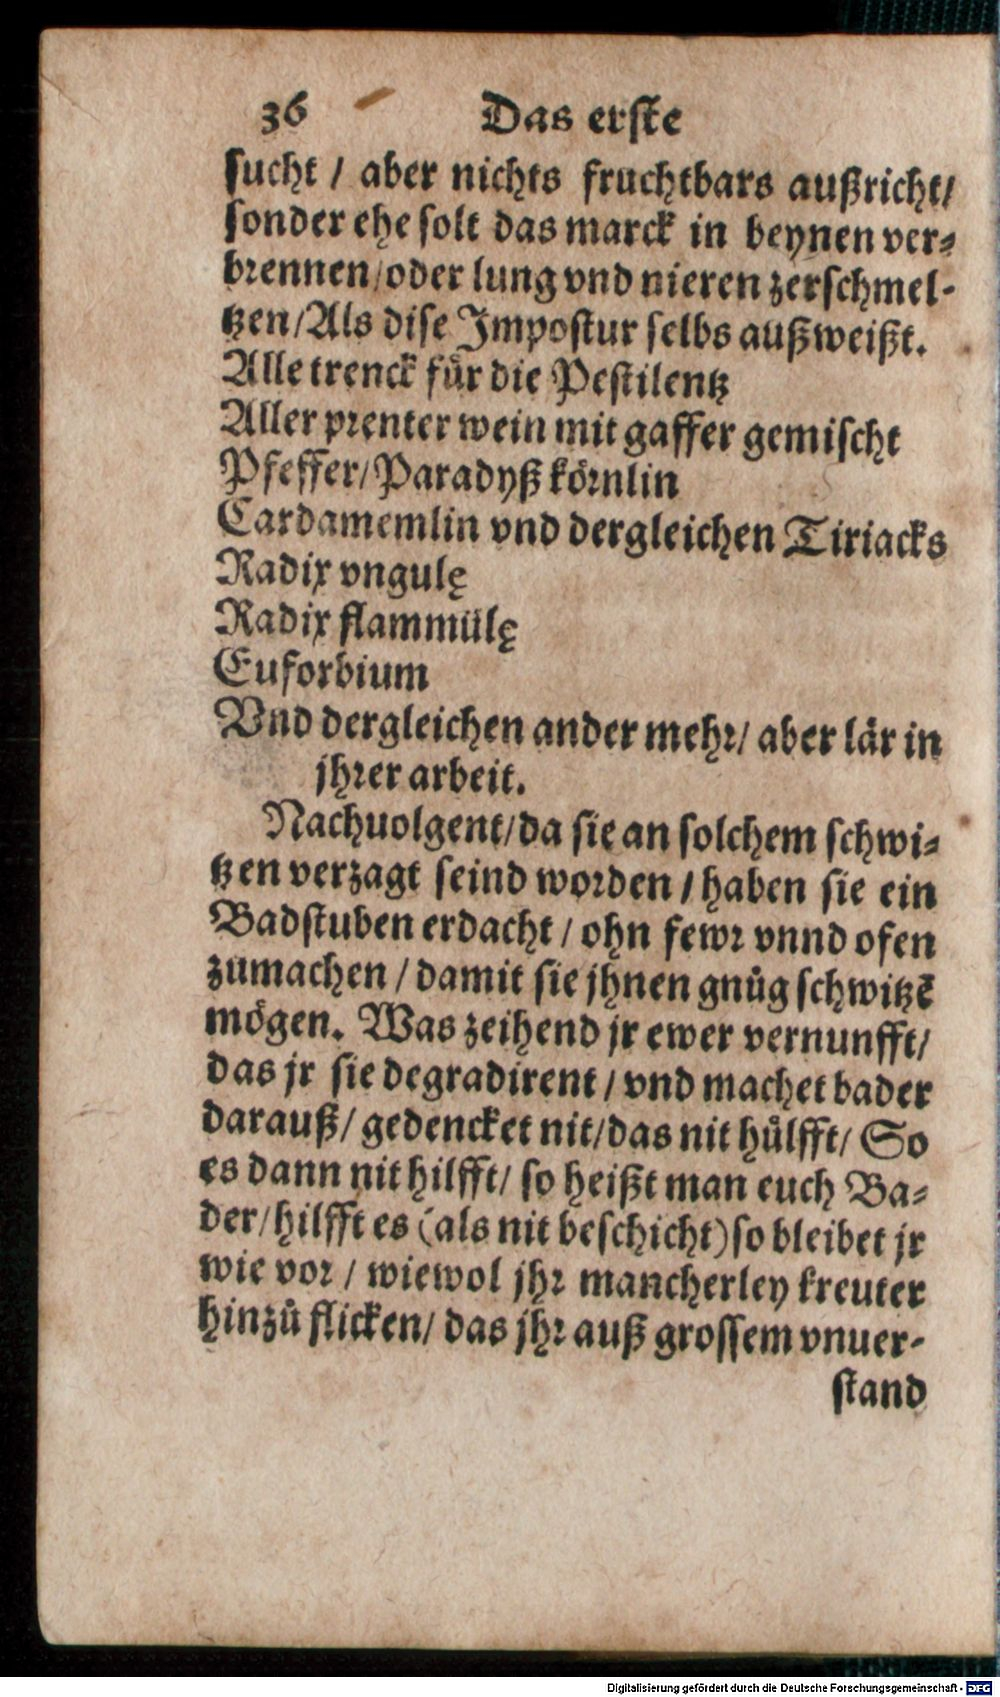 36 Das erste
sucht / aber nichts fruchtbars außricht/
sonder ehe solt das marck in beynen ver⸗
brennen/oder lung vnd nieren zerschmel-
tzen/Als dise Impostur selbs außweißt.
Alle trenck fuͤr die Pestilentz
Aller prenter wein mit gaffer gemischt
Pfeffer/Paradyß koͤrnlin
Cardamemlin vnd dergleichen Tiriacks
Radix vngulę
Radix flammülę
Euforbium
Vnd dergleichen ander mehr/ aber laͤr in
jhrer arbeit.
Nachuolgent/da sie an solchem schwi⸗
tzen verzagt seind worden / haben sie ein
Badstuben erdacht / ohn fewr vnnd ofen
zumachen / damit sie jhnen gnuͦg schwitzē
moͤgen. Was zeihend jr ewer vernunfft/
das jr sie degradirent / vnd machet bader
darauß/ gedencket nit/das nit huͤlfft/ So
es dann nit hilfft/ so heißt man euch Ba⸗
der/hilfft es (als nit beschicht) so bleibet jr
wie vor / wiewol jhr mancherley kreuter
hinzuͦ flicken/ das jhr auß grossem vnuer-
stand
Digitalisierung gefördert durch die Deutsche Forschungsgemeinschaft - DFG